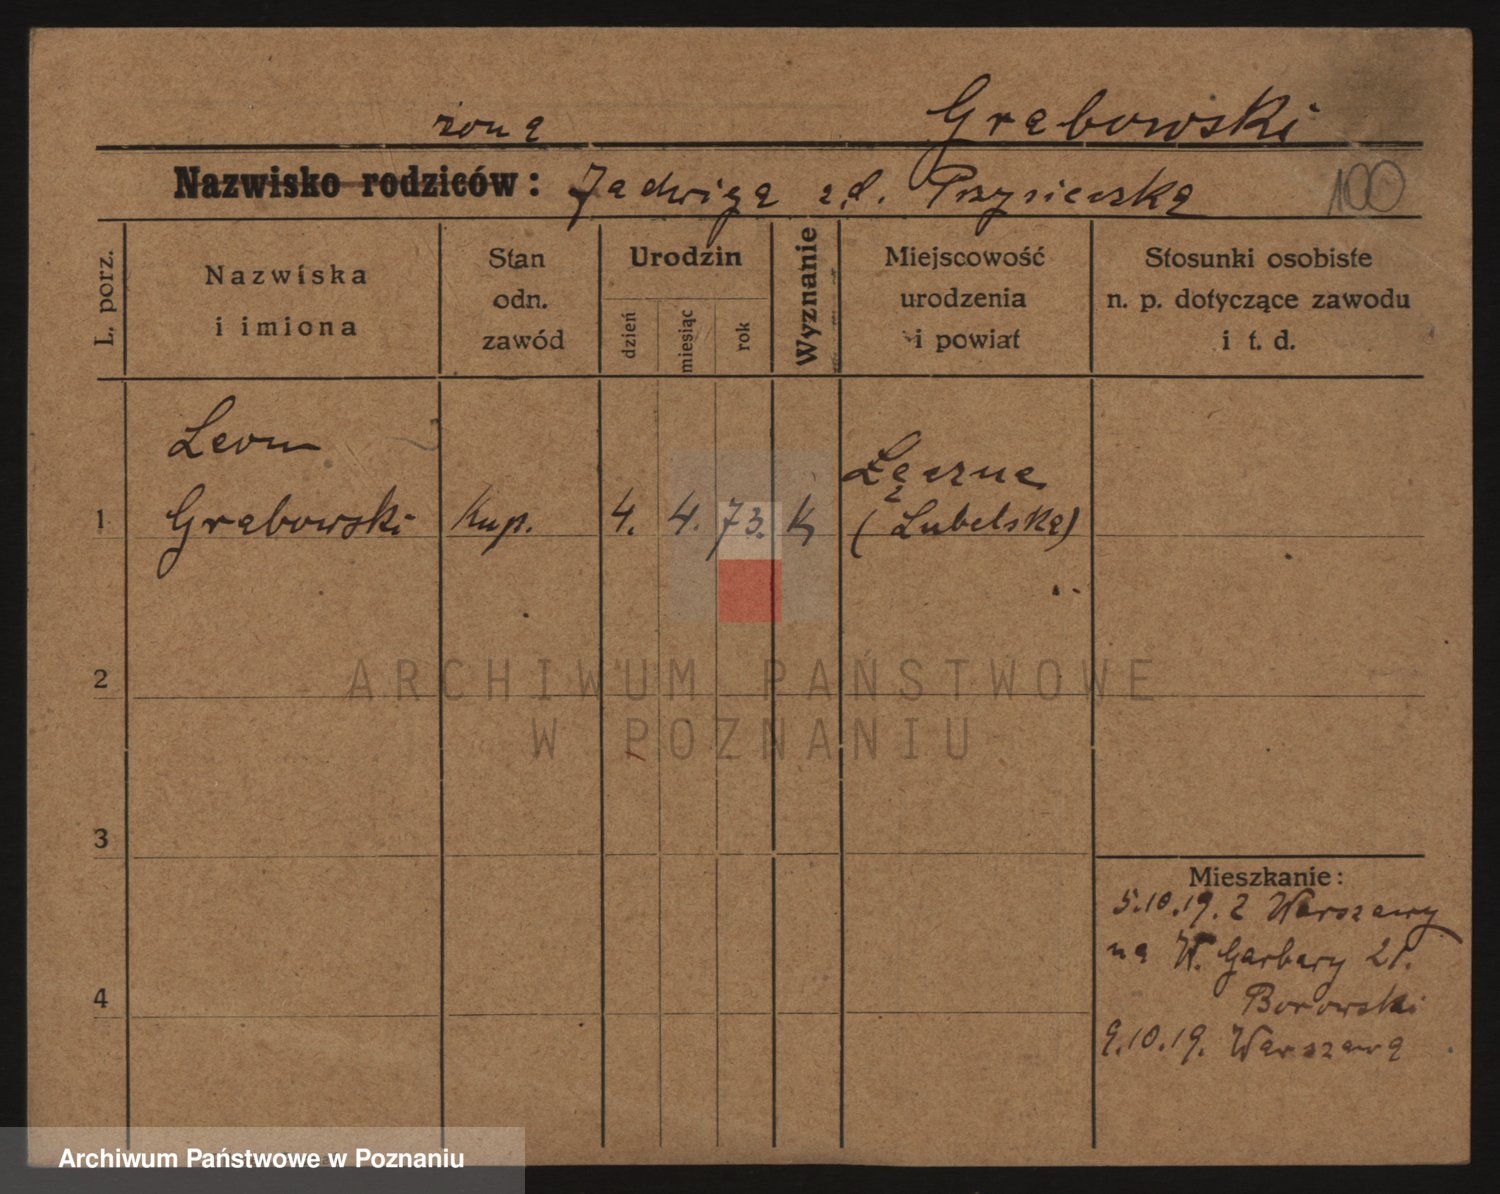 żona Grabowski
Nazwisko rodziców: Jadwiga
100
L. porz.
Nazwiska
i imiona
Stan
odn.
zawód
Urodzin
dzień
miesiąc
rok
Wyznanie
Miejscowość
urodzenia
i powiat
Stosunki osobiste
n. p. dotyczące zawodu
i t. d.
Leon
Łączna
1 Grabowski Kup. 4. 4. 73. K (Lubelska)
2
ARCHIWUM PAŃSTWOWE
W POZNANIU
3
Mieszkanie:
5.10.19. z Warszawy
na W. Garbary 21.
4
Borowski
9.10.19. Warszawa
Archiwum Państwowe w Poznaniu